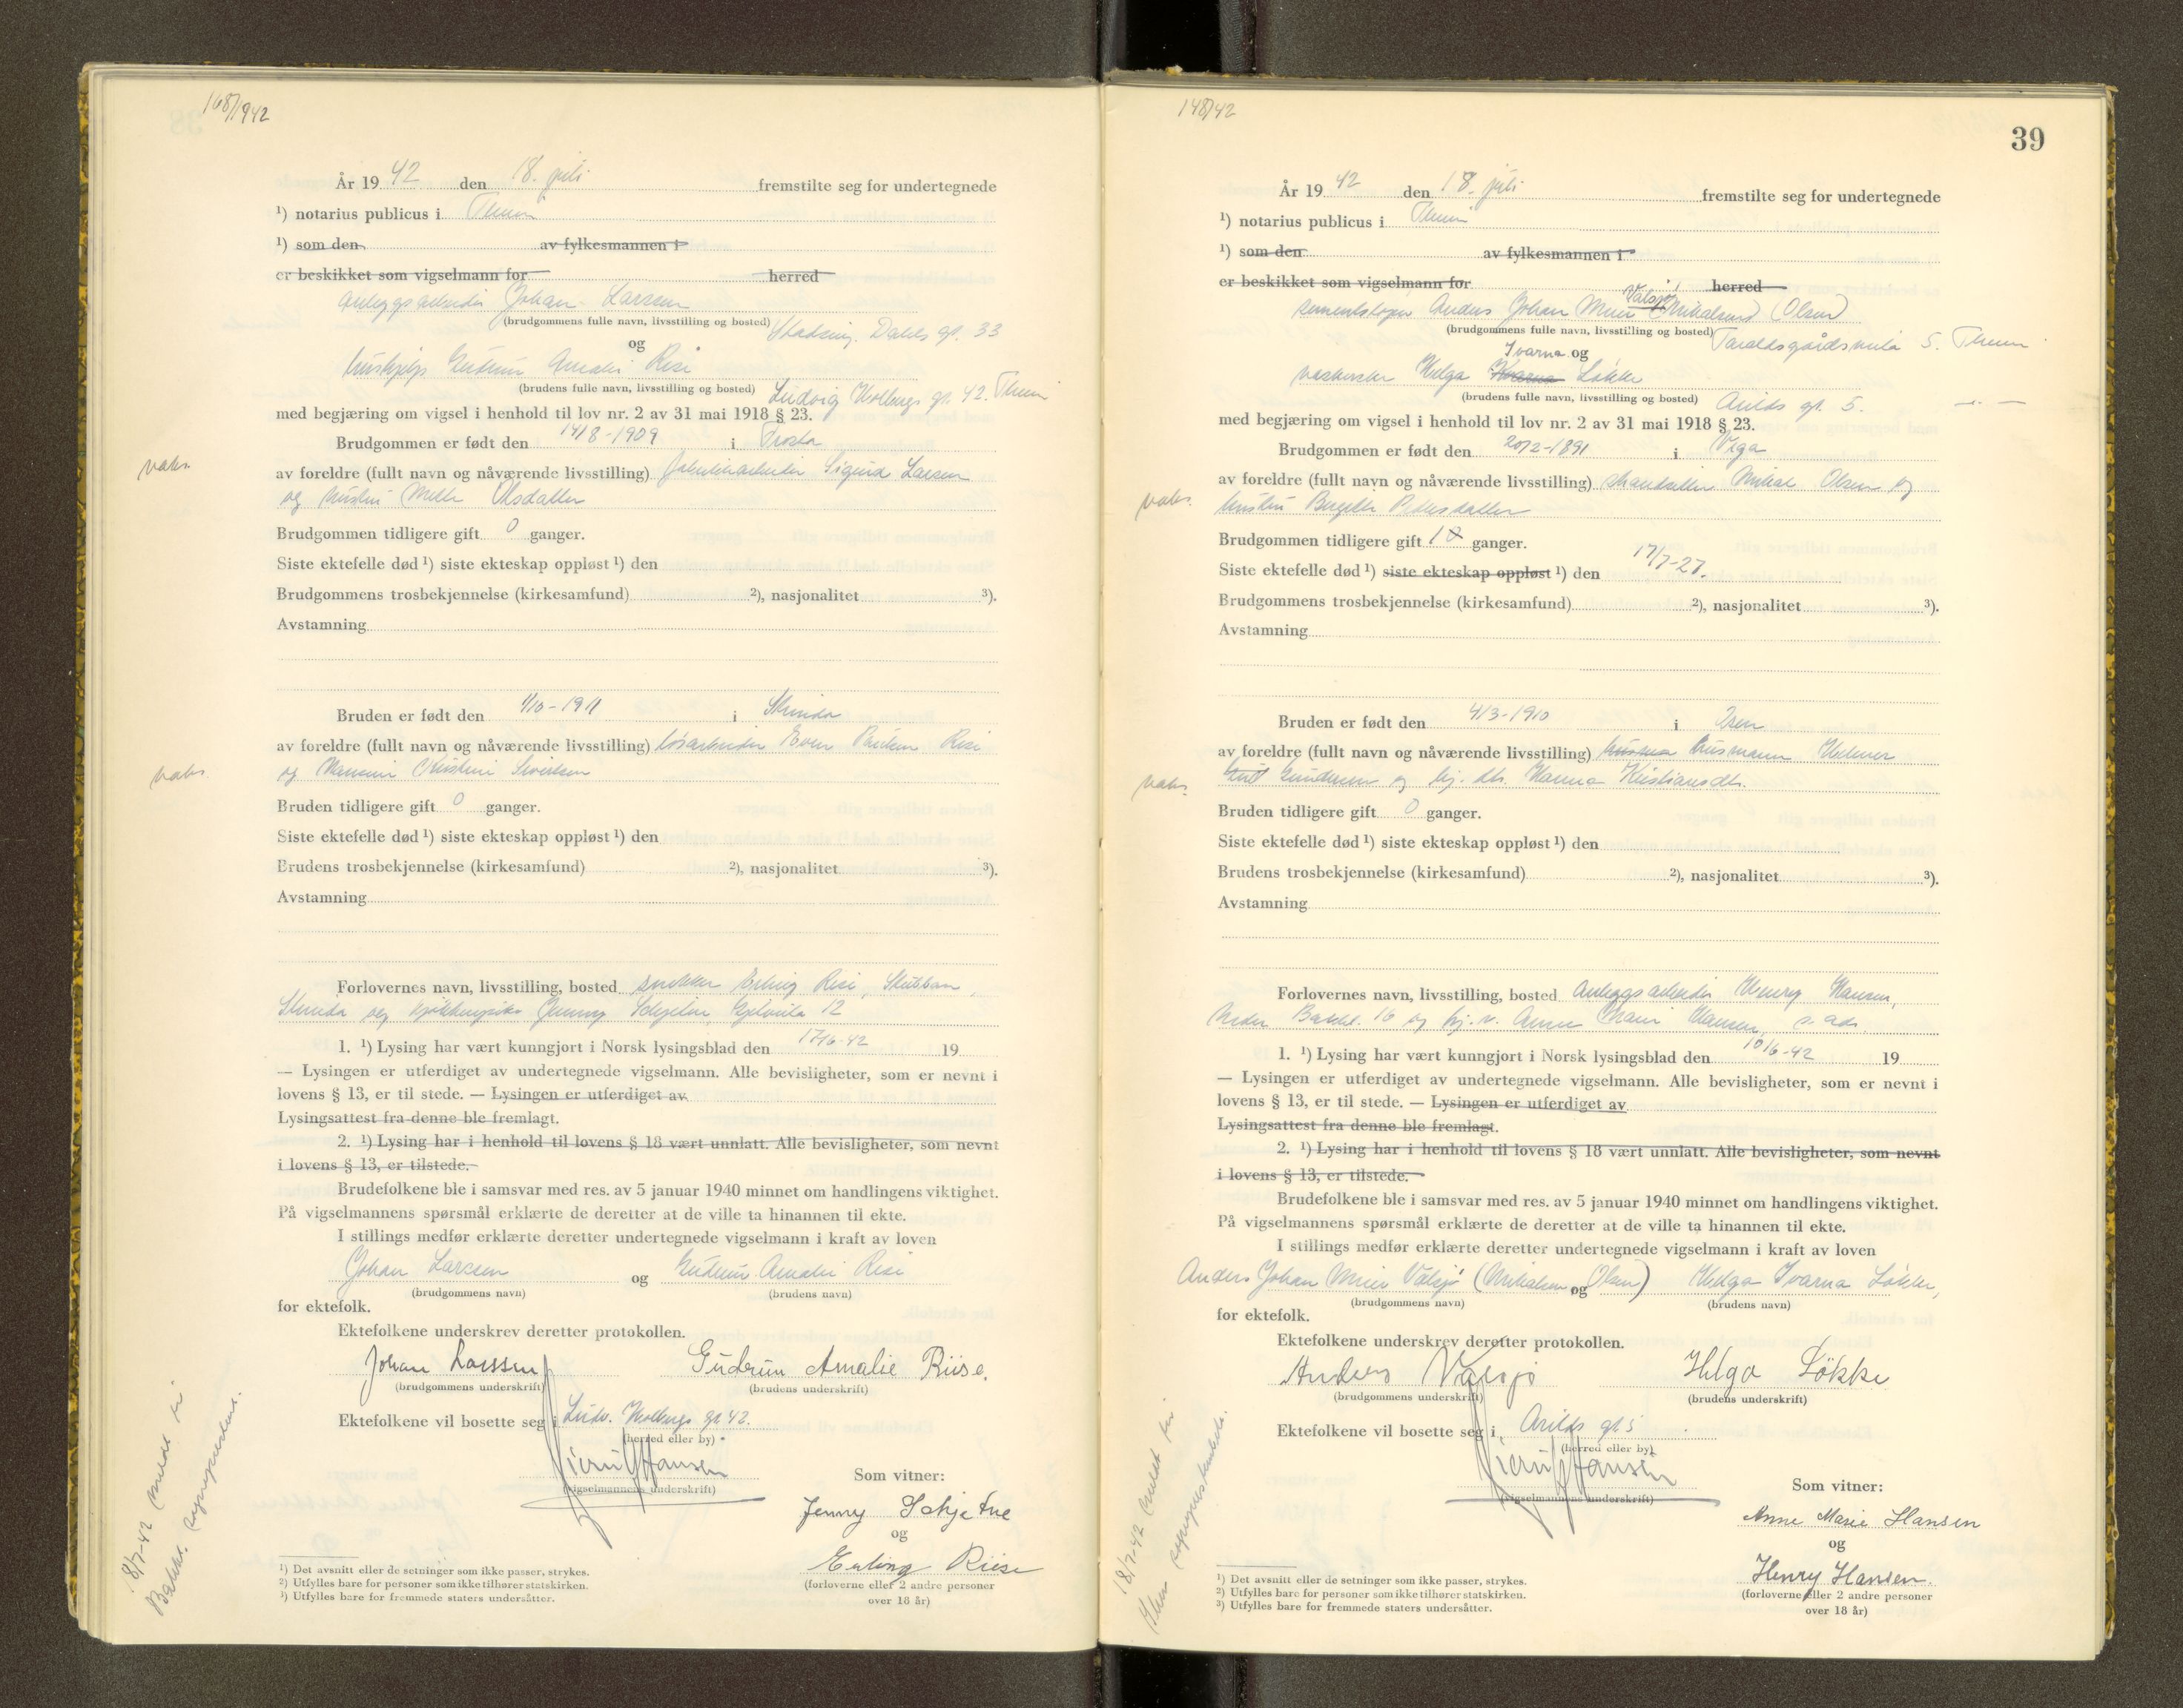 168/1942
År 19 42 den 18. juli fremstilte seg for undertegnede
¹) notarius publicus i Thm
¹) som den av fylkesmannen i
er beskikket som vigselmann for herred
anleggsarbeider Johan Larssen
(brudgommens fulle navn, livsstilling og bosted) Stadsing. Dahls gt. 33
og
hushjelp Gudrun Amalie Rise
(brudens fulle navn, livsstilling og bosted) Ludvig Holbergs gt. 42. Thm
med begjæring om vigsel i henhold til lov nr. 2 av 31 mai 1918 § 23.
Brudgommen er født den 14/8-1909 i Frosta
vaks.
av foreldre (fullt navn og nåværende livsstilling) fabrikkarbeider Sigurd Larsen
og hustru Mette Olsdatter
Brudgommen tidligere gift 0 ganger.
Siste ektefelle død ¹) siste ekteskap oppløst ¹) den
Brudgommens trosbekjennelse (kirkesamfund) ²), nasjonalitet ³).
Avstamning
Bruden er født den 1/10-1911 i Strinda
av foreldre (fullt navn og nåværende livsstilling) løsarbeider Even Rise
vaks.
og Kristine Sivertsen
Bruden tidligere gift 0 ganger.
Siste ektefelle død ¹) siste ekteskap oppløst ¹) den
Brudens trosbekjennelse (kirkesamfund) ²), nasjonalitet ³).
Avstamning
Forlovernes navn, livsstilling, bosted snekker Erling Rise, Stubban,
Strinda og Jenny Schjetne 12
1. ¹) Lysing har vært kunngjort i Norsk lysingsblad den 17/6-42 19
— Lysingen er utferdiget av undertegnede vigselmann. Alle bevisligheter, som er nevnt i
lovens § 13, er til stede. — Lysingen er utferdiget av
Lysingsattest fra denne ble fremlagt.
2. ¹) Lysing har i henhold til lovens § 18 vært unnlatt. Alle bevisligheter, som nevnt
i lovens § 13, er tilstede.
Brudefolkene ble i samsvar med res. av 5 januar 1940 minnet om handlingens viktighet.
På vigselmannens spørsmål erklærte de deretter at de ville ta hinannen til ekte.
I stillings medfør erklærte deretter undertegnede vigselmann i kraft av loven
Johan Larssen og Gudrun Amalie Rise
(brudgommens navn) (brudens navn)
for ektefolk.
Ektefolkene underskrev deretter protokollen.
Johan Larssen Gudrun Amalie Riise.
(brudgommens underskrift) (brudens underskrift)
Ektefolkene vil bosette seg i Ludv. Holbergs gt 42.
(herred eller by)
Hansen
(vigselmannens underskrift)
Som vitner:
Jenny Schjetne
og
Erling Riise
(forloverne eller 2 andre personer
over 18 år)
18/7-42 meldt til
Bakke sogneprestemb.
¹) Det avsnitt eller de setninger som ikke passer, strykes.
²) Utfylles bare for personer som ikke tilhører statskirken.
³) Utfylles bare for fremmede staters undersåtter.
148/42
39
År 19 42 den 18. juli fremstilte seg for undertegnede
¹) notarius publicus i Thm
¹) som den av fylkesmannen i
er beskikket som vigselmann for herred
Valsjø
sementstøper Anders Johan Meier Mikalsen (Olsen)
(brudgommens fulle navn, livsstilling og bosted) Taraldsgårdsveita 5. Thm
Ivarna og
vaskerske Helga Løkke
(brudens fulle navn, livsstilling og bosted) Arilds gt. 5. — " —
med begjæring om vigsel i henhold til lov nr. 2 av 31 mai 1918 § 23.
Brudgommen er født den 20/2-1891 i Vega
av foreldre (fullt navn og nåværende livsstilling) strandsitter Mikal Olsen og
vaks.
hustru Bergitte Pettersdatter
Brudgommen tidligere gift 1 ganger.
Siste ektefelle død ¹) siste ekteskap oppløst ¹) den 17/7-27.
Brudgommens trosbekjennelse (kirkesamfund) ²), nasjonalitet ³).
Avstamning
Bruden er født den 4/3-1910 i Osen
av foreldre (fullt navn og nåværende livsstilling) husmann Helmer
vaks.
Gundersen og hj. dtr. Hanna Kristiansdtr.
Bruden tidligere gift 0 ganger.
Siste ektefelle død ¹) siste ekteskap oppløst ¹) den
Brudens trosbekjennelse (kirkesamfund) ²), nasjonalitet ³).
Avstamning
Forlovernes navn, livsstilling, bosted Anleggsarbeider Henry Hansen,
Nedre Bakkl. 16 og hj. v. Anne Marie Hansen, s. adr.
1. ¹) Lysing har vært kunngjort i Norsk lysingsblad den 10/6-42 19
— Lysingen er utferdiget av undertegnede vigselmann. Alle bevisligheter, som er nevnt i
lovens § 13, er til stede. — Lysingen er utferdiget av
Lysingsattest fra denne ble fremlagt.
2. ¹) Lysing har i henhold til lovens § 18 vært unnlatt. Alle bevisligheter, som nevnt
i lovens § 13, er tilstede.
Brudefolkene ble i samsvar med res. av 5 januar 1940 minnet om handlingens viktighet.
På vigselmannens spørsmål erklærte de deretter at de ville ta hinannen til ekte.
I stillings medfør erklærte deretter undertegnede vigselmann i kraft av loven
Anders Johan Meier Valsjø (Mikalsen og Olsen) Helga Ivarna Løkke,
(brudgommens navn) (brudens navn)
for ektefolk.
Ektefolkene underskrev deretter protokollen.
Anders Valsjø Helga Løkke
(brudgommens underskrift) (brudens underskrift)
Ektefolkene vil bosette seg i Arilds gt 5
(herred eller by)
Hansen
(vigselmannens underskrift)
Som vitner:
Anne Marie Hansen
og
Henry Hansen.
(forloverne eller 2 andre personer
over 18 år)
18/7-42 meldt til
sogneprestembede.
¹) Det avsnitt eller de setninger som ikke passer, strykes.
²) Utfylles bare for personer som ikke tilhører statskirken.
³) Utfylles bare for fremmede staters undersåtter.